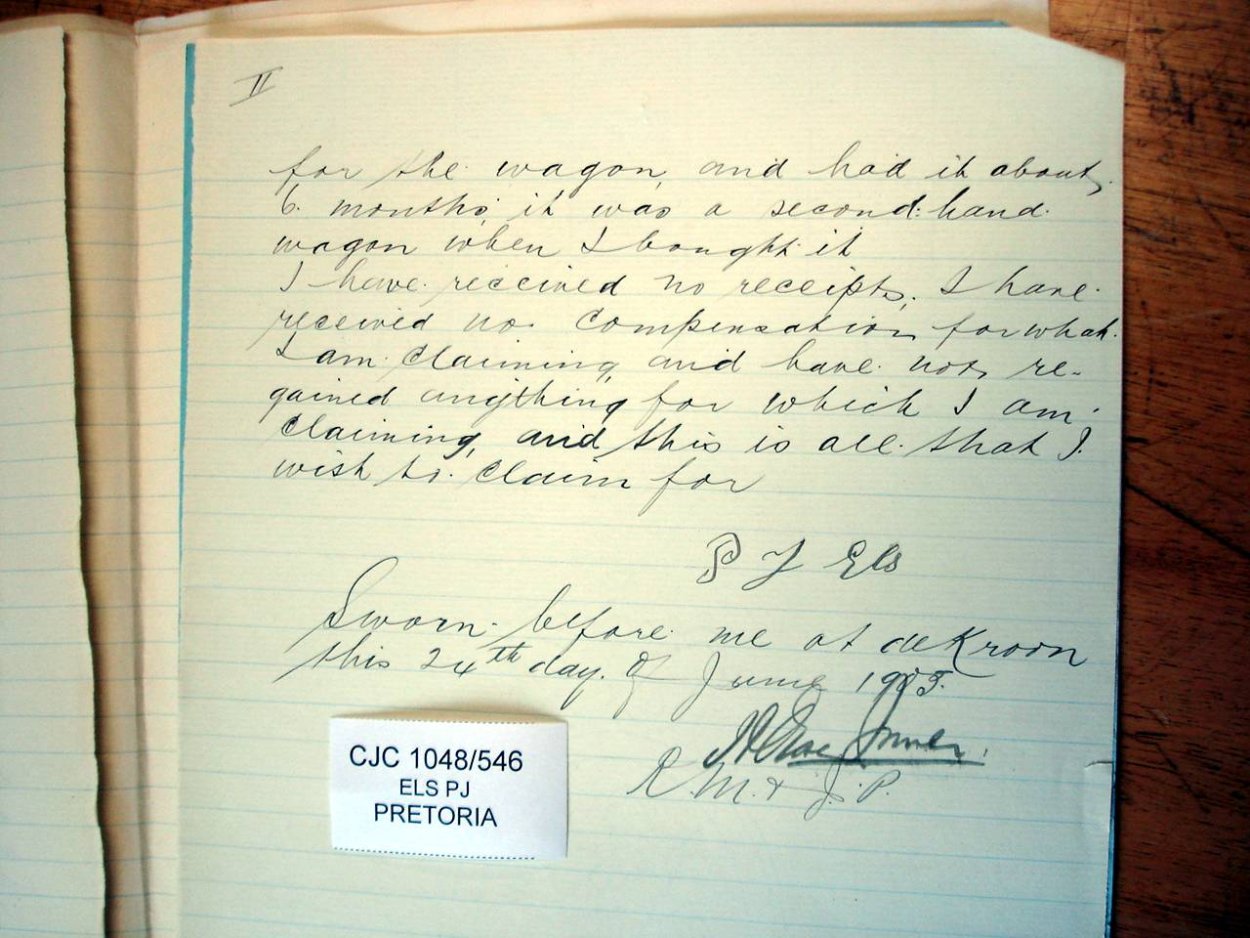 II
for the wagon, and had it about
6 months, it was a second-hand
wagon when I bought it
I have received no receipts. I have
received no compensation for what
I am claiming, and have not re-
gained anything for which I am
claiming, and this is all that I
wish to claim for
P J Els
Sworn before me at deKroon
this 24th day of June 1903.
R.M. & J.P.
CJC 1048/546
ELS PJ
PRETORIA